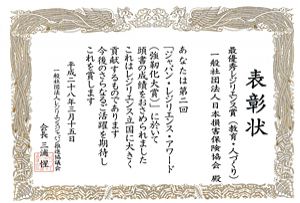 表彰状
最優秀レジリエンス賞(教育・人づくり)
一般社団法人日本損害保険協会 殿
あなたは第二回
「ジャパン・レジリエンス・アワード
(強靭化大賞)」に於いて
頭書の成績をおさめられました
これはレジリエンス立国に大きく
貢献するものであります
今後のさらなるご活躍を期待し
これを賞します
平成二十八年三月十五日
一般社団法人レジリエンスジャパン推進協議会
会長 三浦 惺